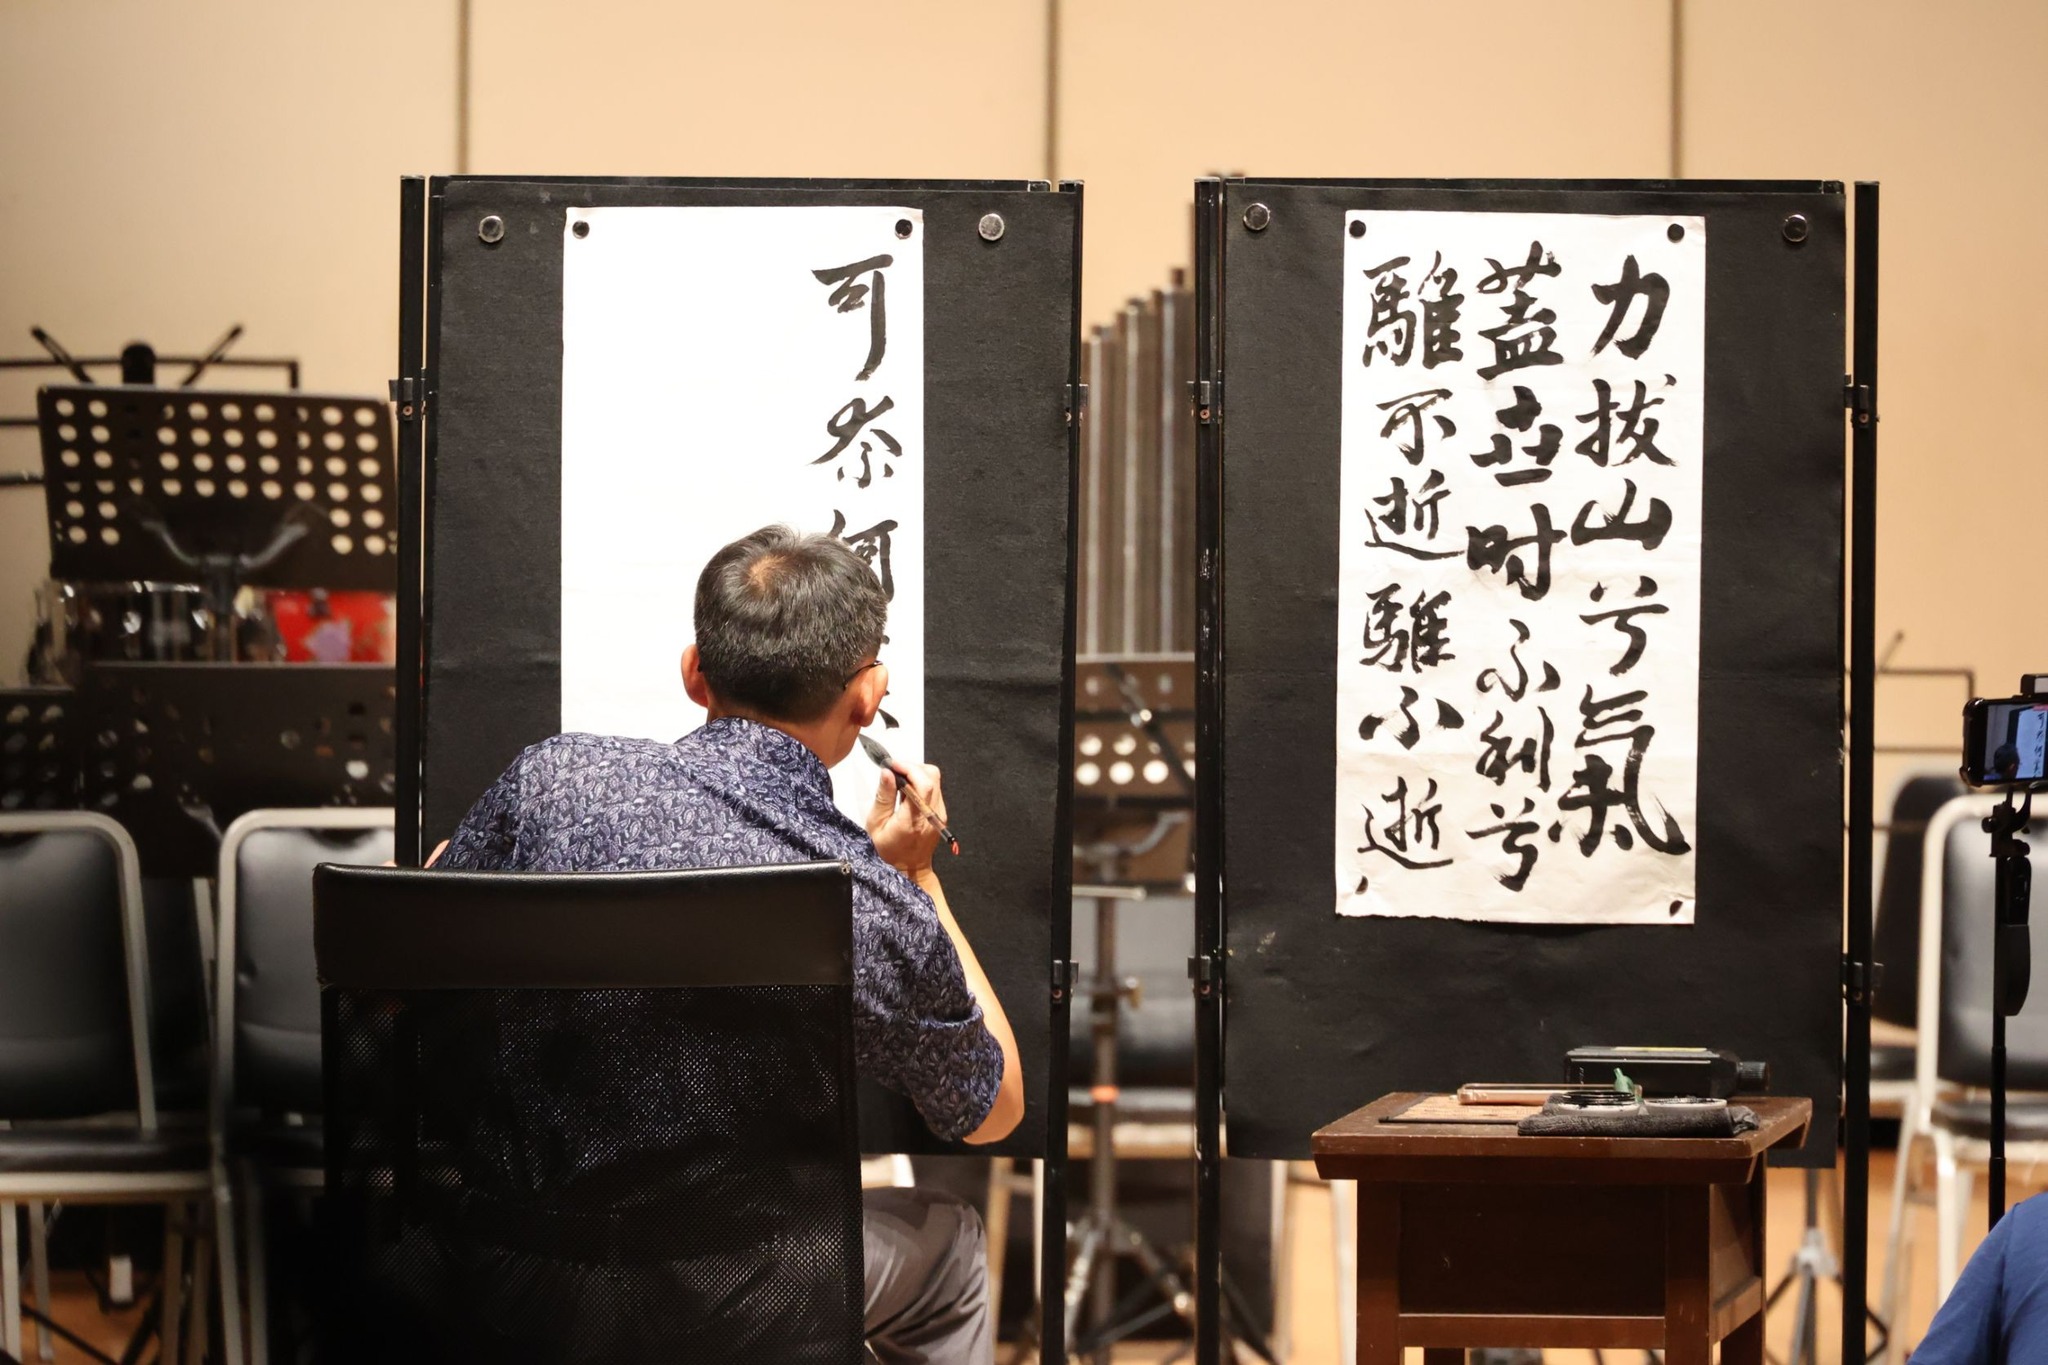 力拔山兮氣
蓋世時不利兮
騅不逝騅不逝
可奈何